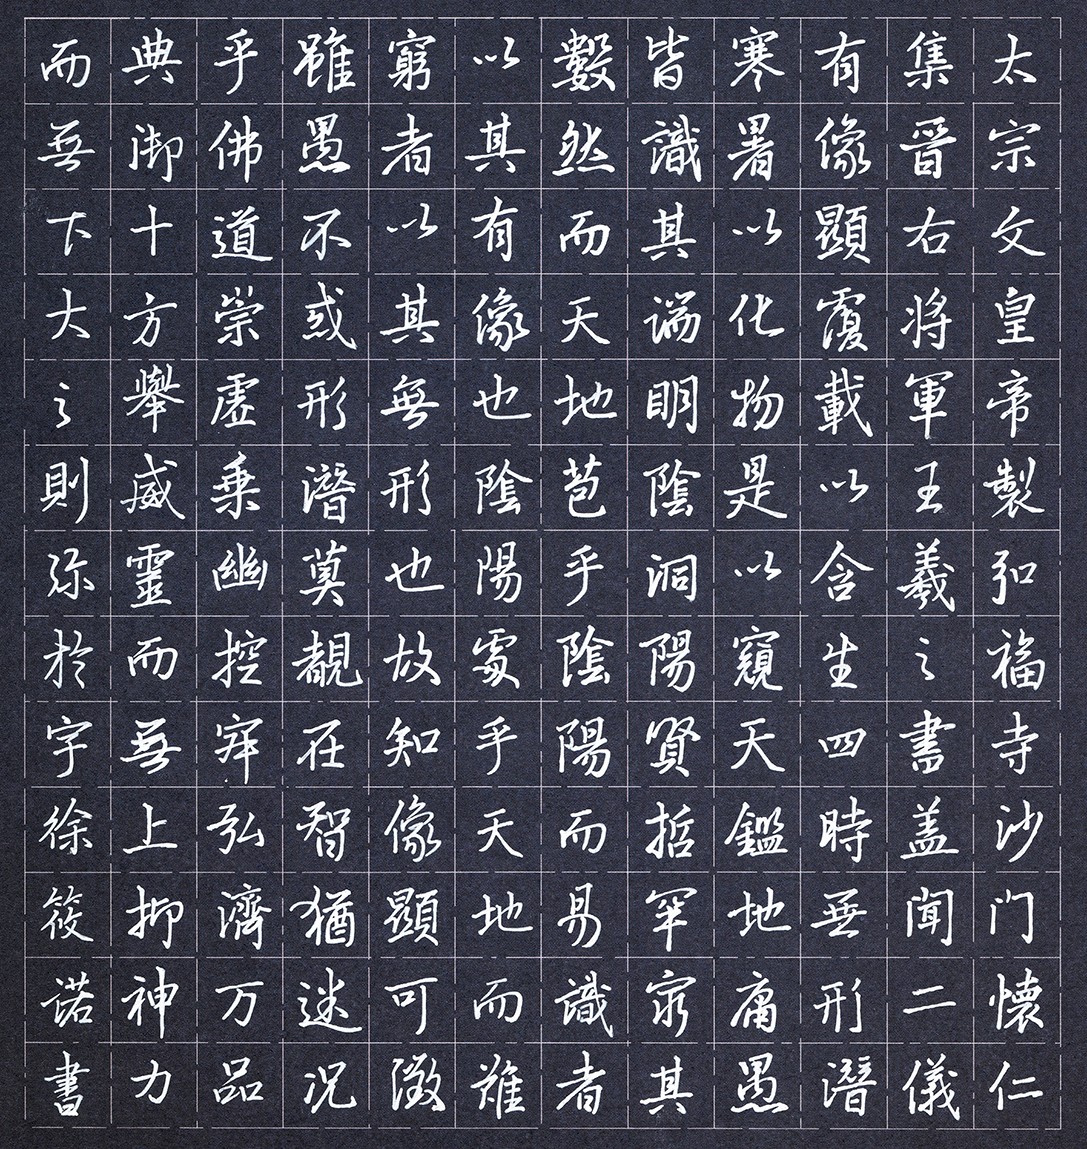 太宗文皇帝製弘福寺沙门懷仁
集晉右將軍王羲之書蓋聞二儀
有像顯覆載以含生四時無形潛
寒暑以化物是以窺天鑑地庸愚
皆識其端明陰洞陽賢哲罕窮其
數然而天地苞乎陰陽而易識者
以其有像也陰陽處乎天地而難
窮者以其無形也故知像顯可徵
雖愚不惑形潛莫覩在智猶迷况
乎佛道崇虛乘幽控寂弘濟万品
典御十方舉威靈而無上抑神力
而無下大之則弥於宇徐筱诺書